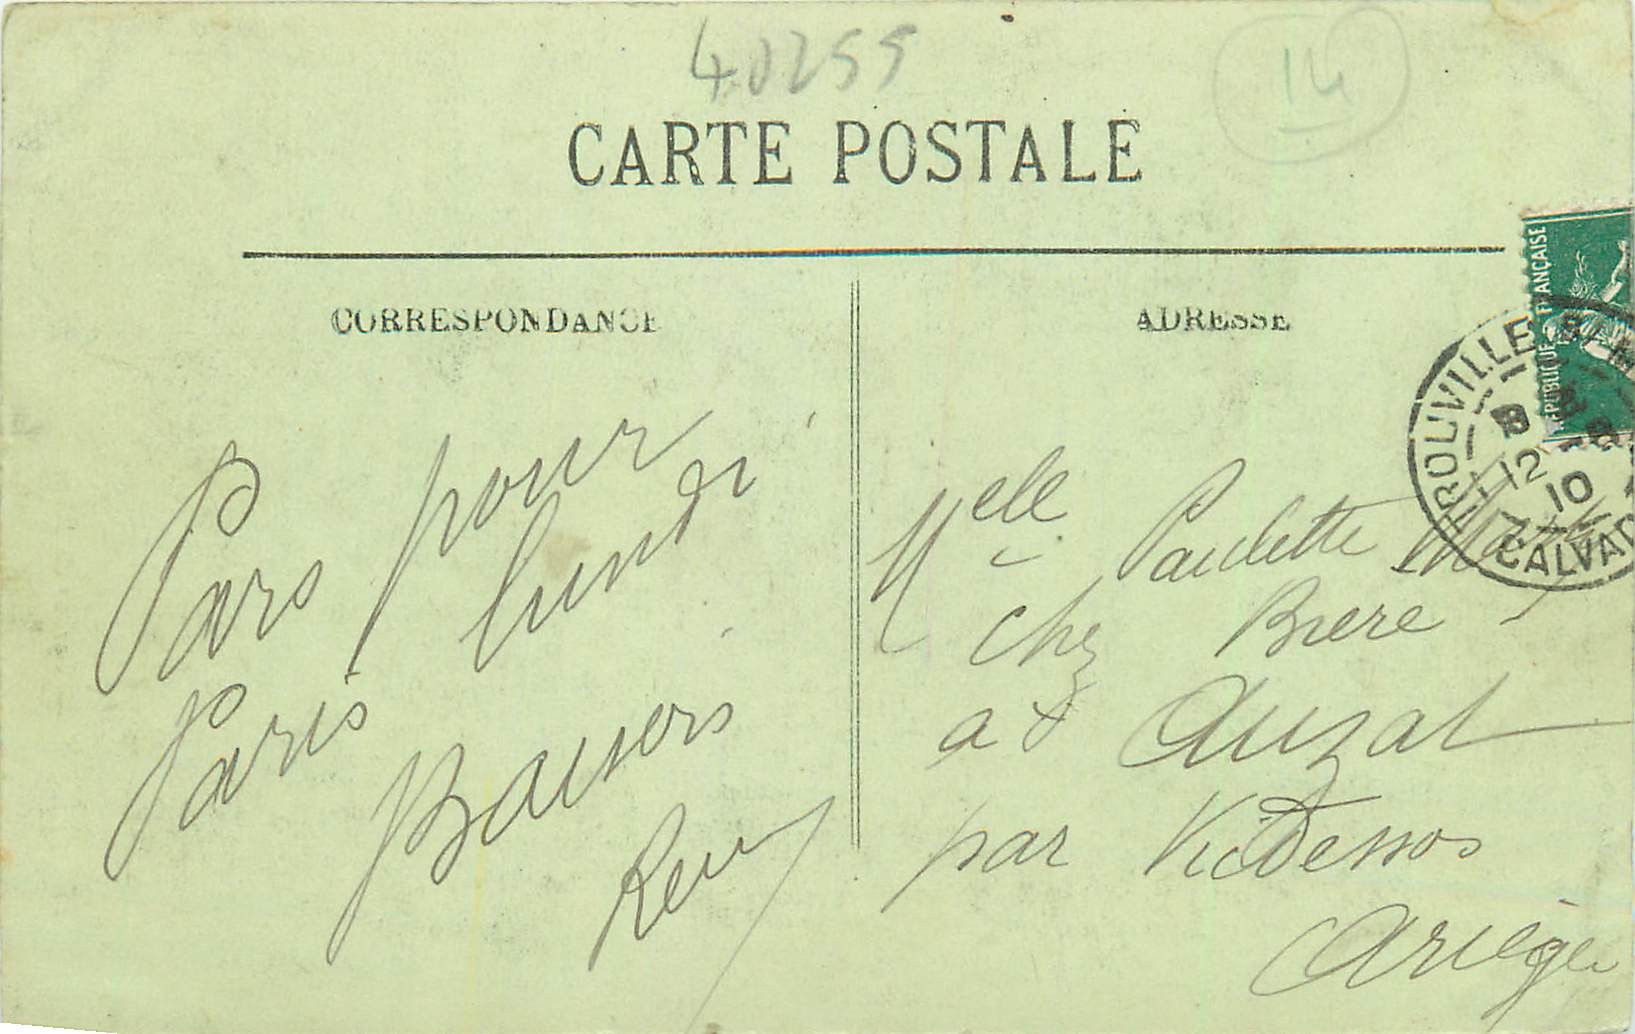 40255
14
CARTE POSTALE
CORRESPONDANCE
ADRESSE
RÉPUBLIQUE FRANÇAISE
TROUVILLE S/M
12 - 8
10
CALVADOS
Pars pour
Paris lundi
Baisers
Mele Paulette
chez Biere
à Auzat
par Vicdessos
Ariège